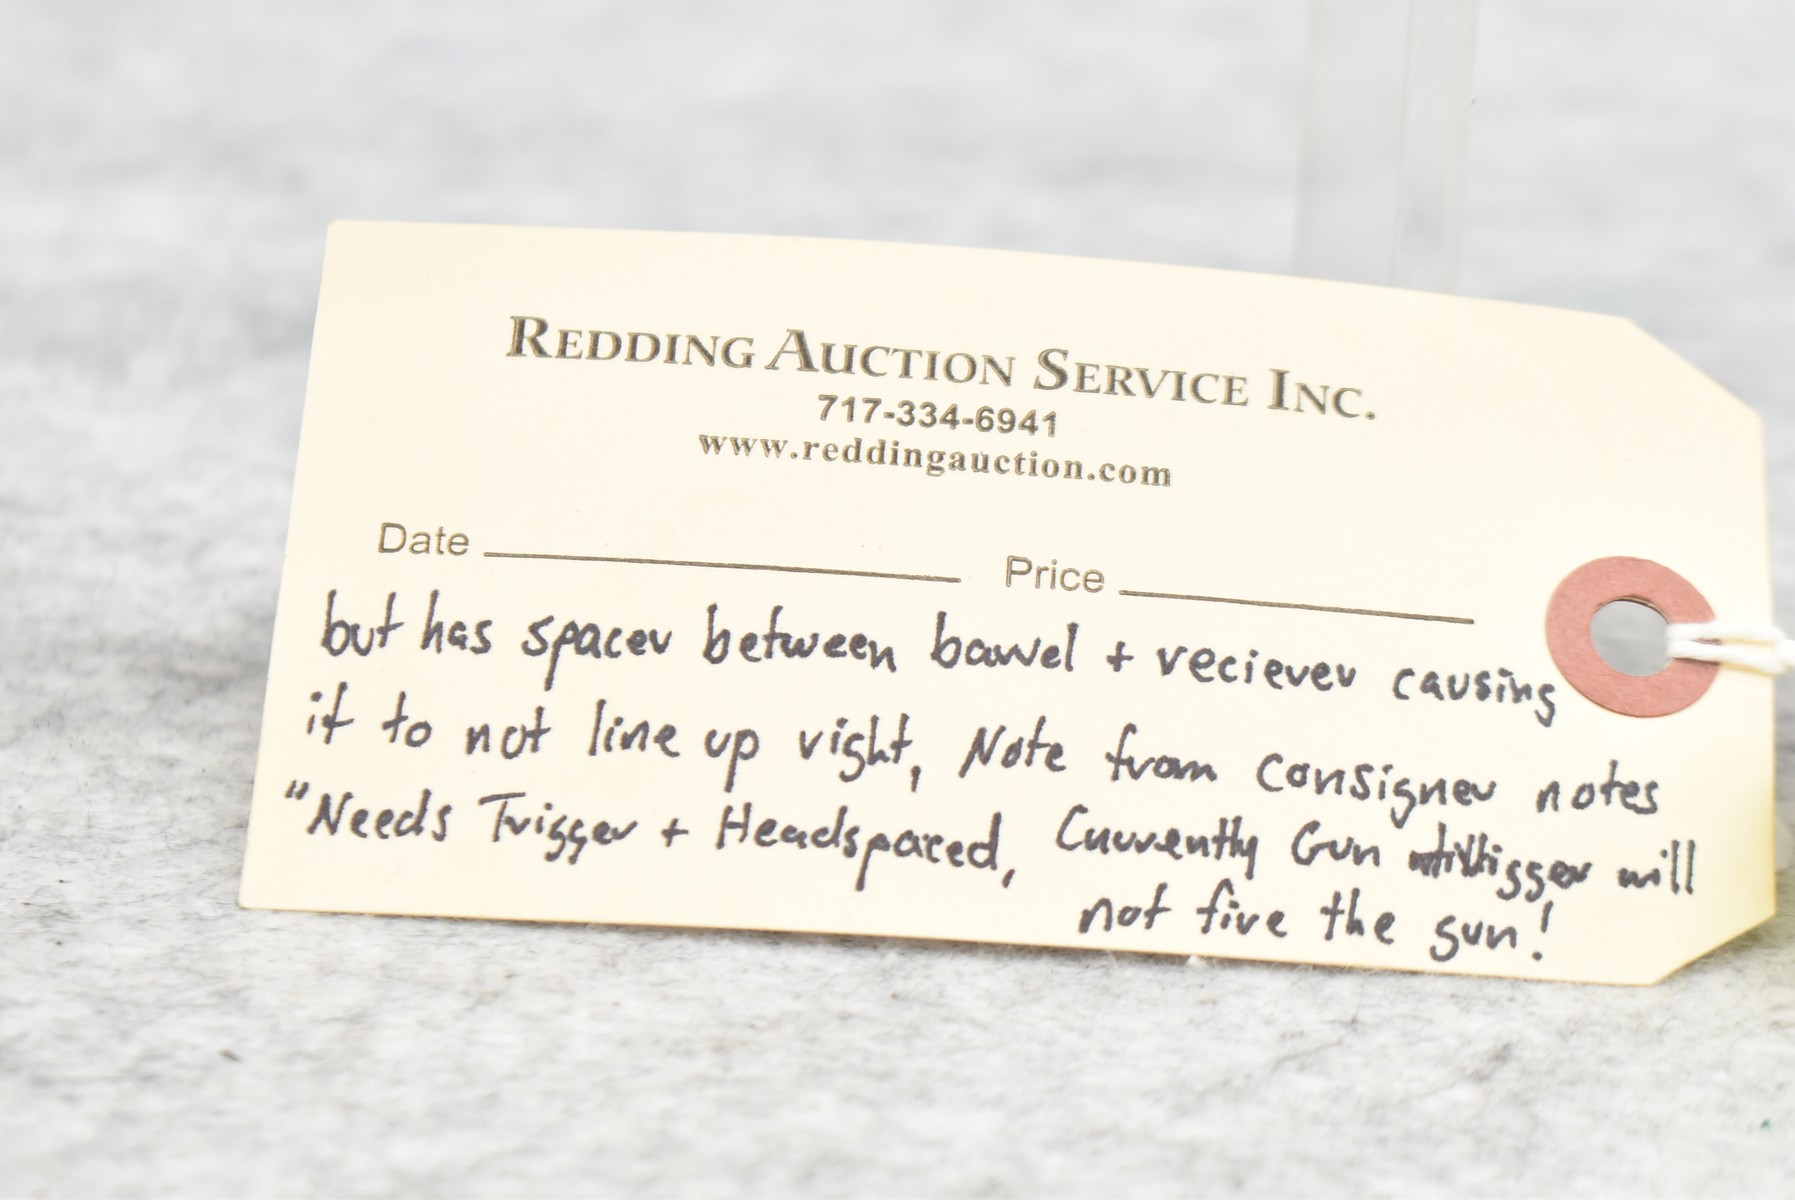 REDDING AUCTION SERVICE INC.
717-334-6941
www.reddingauction.com
Date Price
but has spacer between barrel + reciever causing
it to not line up right, Note from consigner notes
"Needs Trigger + Headspaced, Currently Gun trigger will
not fire the gun!